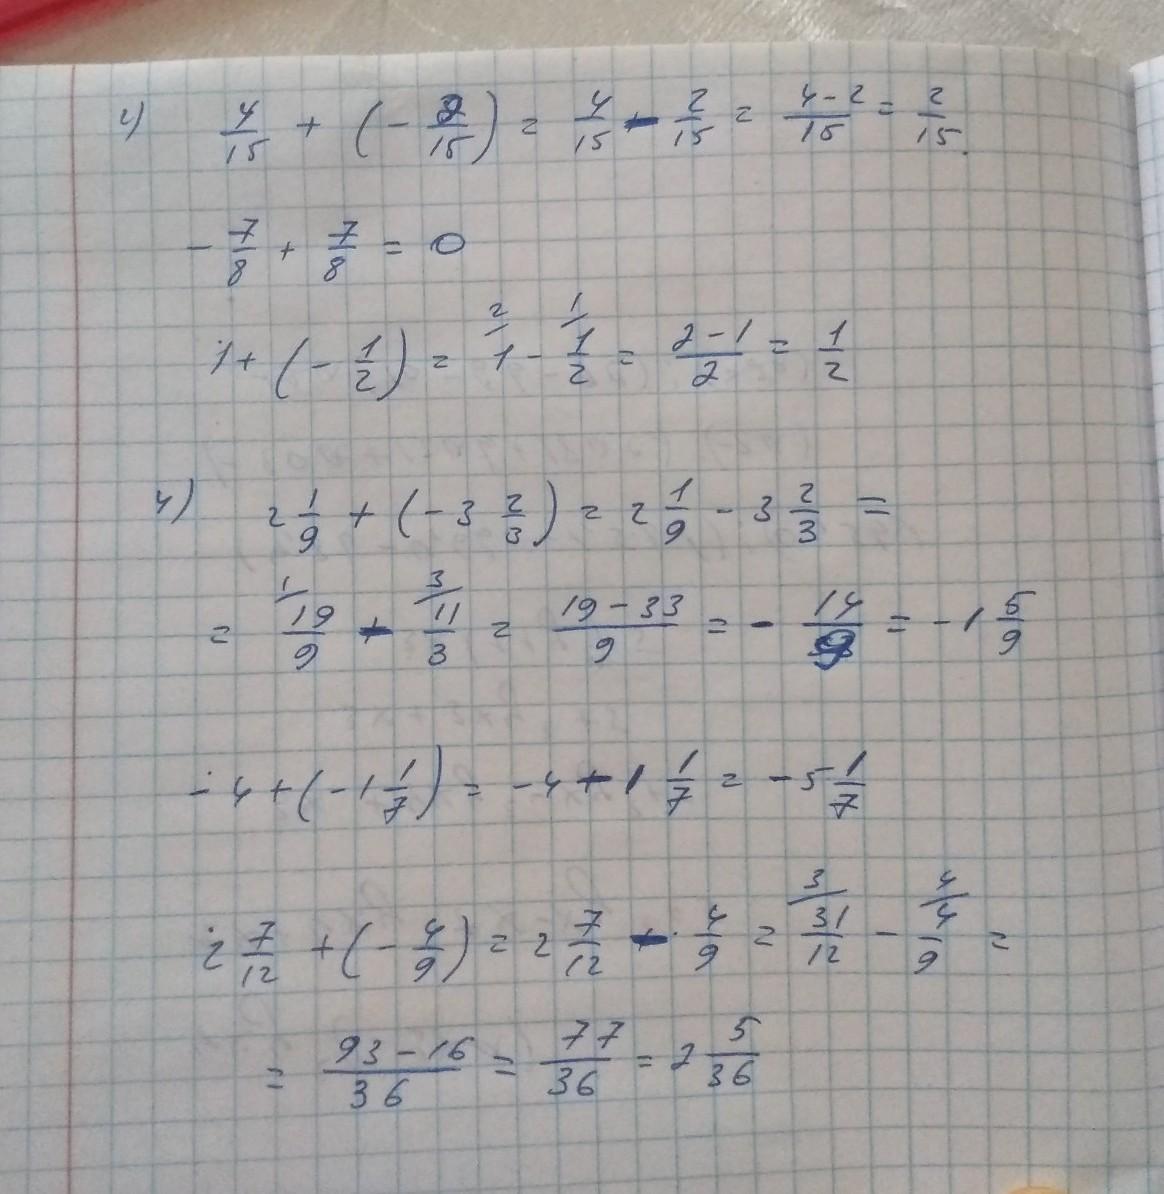 1) 4/15 + (- 2/15) = 4/15 - 2/15 = (4-2)/15 = 2/15.
- 7/8 + 7/8 = 0
1 + (- 1/2) = 2/ 1 - 1/ 1/2 = (2-1)/2 = 1/2
4) 2 1/9 + (-3 2/3) = 2 1/9 - 3 2/3 =
= 1/ 19/9 - 3/ 11/3 = (19-33)/9 = - 14/9 = -1 5/9
- 4 + (-1 1/7) = -4 - 1 1/7 = -5 1/7
2 7/12 + (- 4/9) = 2 7/12 - 4/9 = 3/ 31/12 - 4/ 4/9 =
= (93-16)/36 = 77/36 = 2 5/36